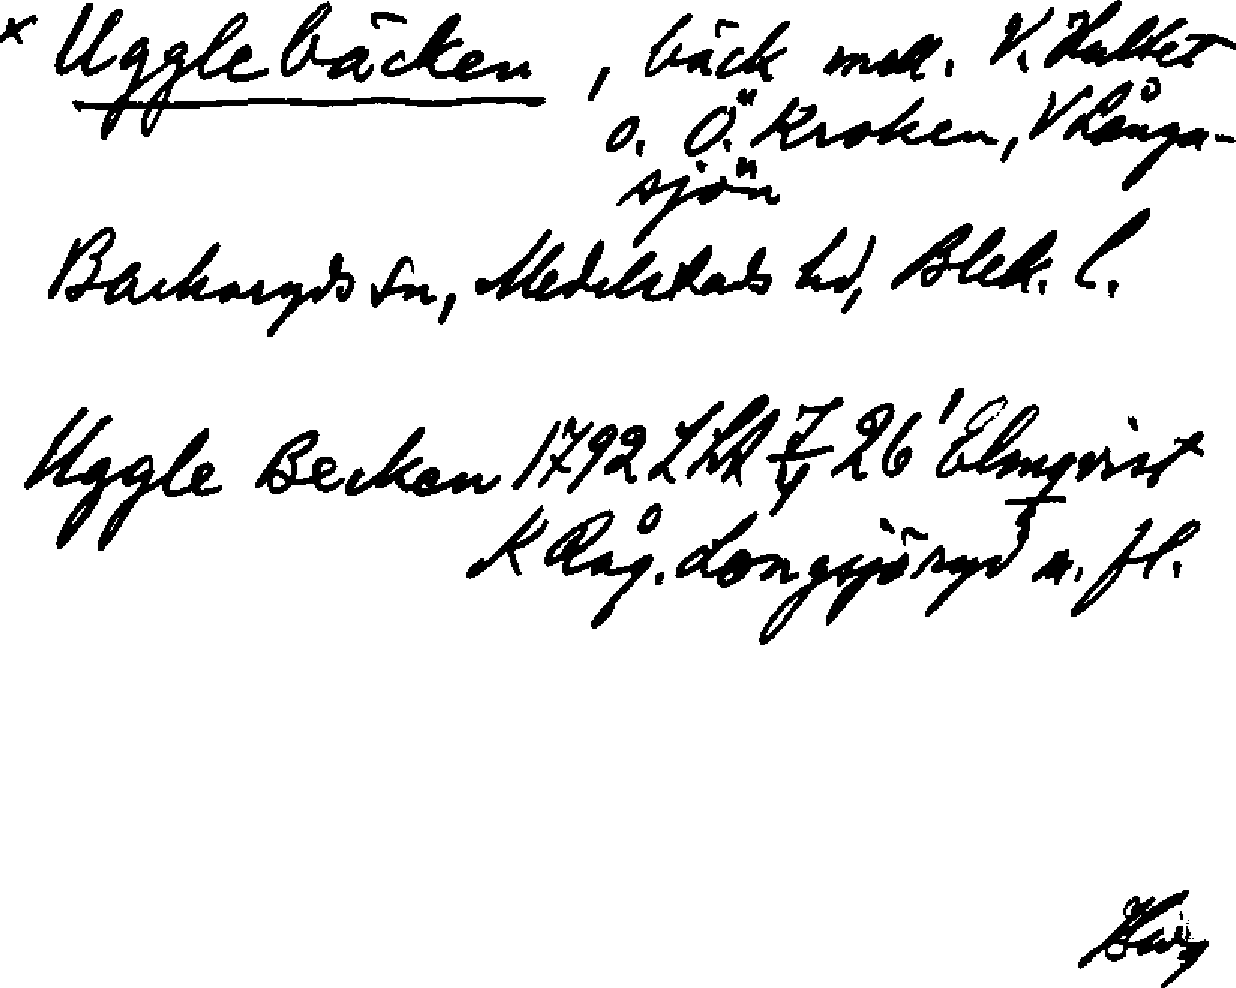 × Ugglebäcken, bäck mell. V. Hultet
o. Ö. Kroken, V Långa-
sjön
Backaryds sn, Medelstads hd, Blek. l.
Uggle Becken 1792 26' Elmqvist
K Råg. Longsjöryd m. fl.